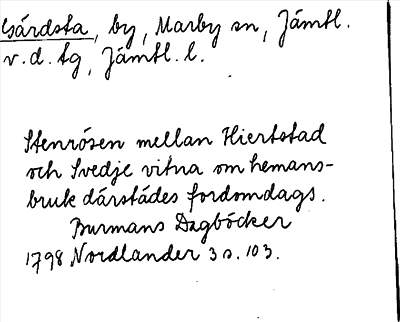 Gärdsta, by, Marby sn, Jämtl.
v. d. tg, Jämtl. l.
Stenrösen mellan Hiertstad
och Svedje vitna om hemans-
bruk därstädes fordomdags.
Burmans Dagböcker
1798 Nordlander 3 s. 103.